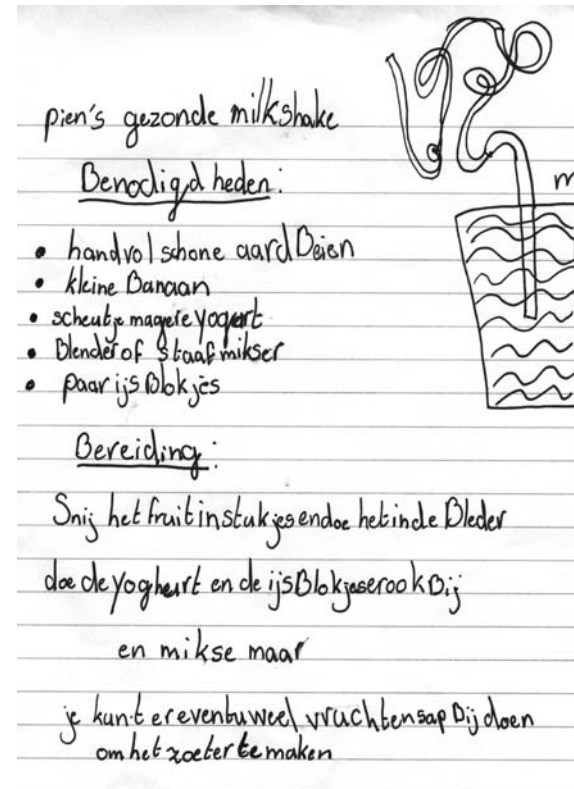 pien's gezonde milkshake
Benodigd heden:
• handvol schone aardBeien
• kleine Banaan
• scheutje magere yogurt
• Blender of staafmikser
• paar ijsBlokjes
Bereiding:
Snij het fruit in stukjes en doe het in de Bleder
doe de yoghurt en de ijsBlokjes er ook Bij
en mikse maar
je kunt er eventuweel vruchtensap Bij doen
om het zoeter te maken
m